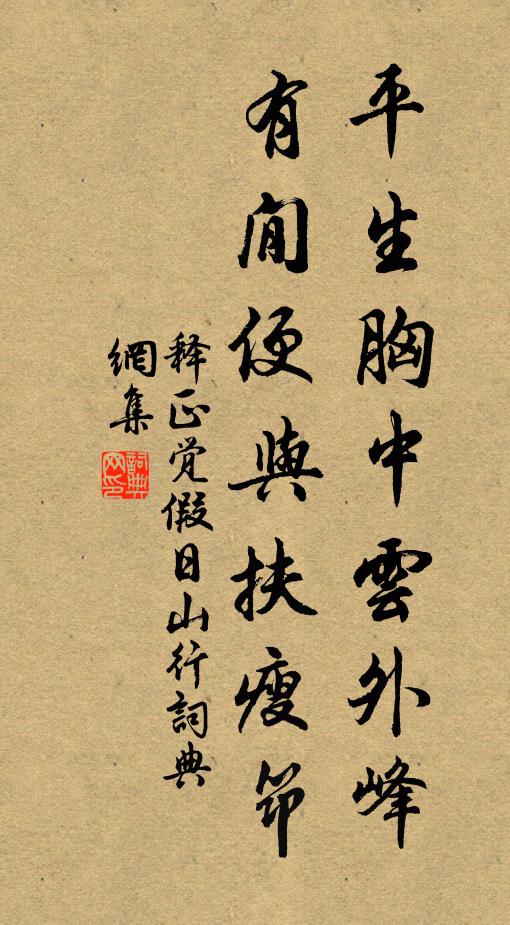 平生胸中雲外峰
有閒便與扶瘦筇
释正觉假日山行詞典
網集
詞典
网印